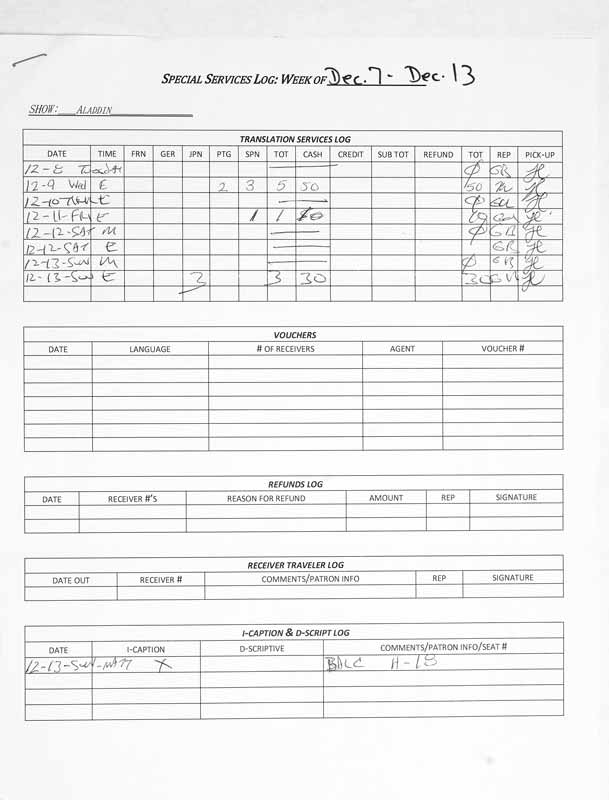 SPECIAL SERVICES LOG: WEEK OF Dec. 7 - Dec. 13
SHOW: ALADDIN
TRANSLATION SERVICES LOG
DATE TIME FRN GER JPN PTG SPN TOT CASH CREDIT SUB TOT REFUND TOT REP PICK-UP
12-8 Ø GB
12-9 Wed E 2 3 5 50 50
12-10 E Ø
12-11-FRI E 1 1 10 10
12-12-SAT M Ø GB
12-12-SAT E GB
12-13-SUN M Ø GB
12-13-SUN E 3 3 30 30 GB
VOUCHERS
DATE LANGUAGE # OF RECEIVERS AGENT VOUCHER #
REFUNDS LOG
DATE RECEIVER #'S REASON FOR REFUND AMOUNT REP SIGNATURE
RECEIVER TRAVELER LOG
DATE OUT RECEIVER # COMMENTS/PATRON INFO REP SIGNATURE
I-CAPTION & D-SCRIPT LOG
DATE I-CAPTION D-SCRIPTIVE COMMENTS/PATRON INFO/SEAT #
12-13-SUN-MAT X BALC H-18